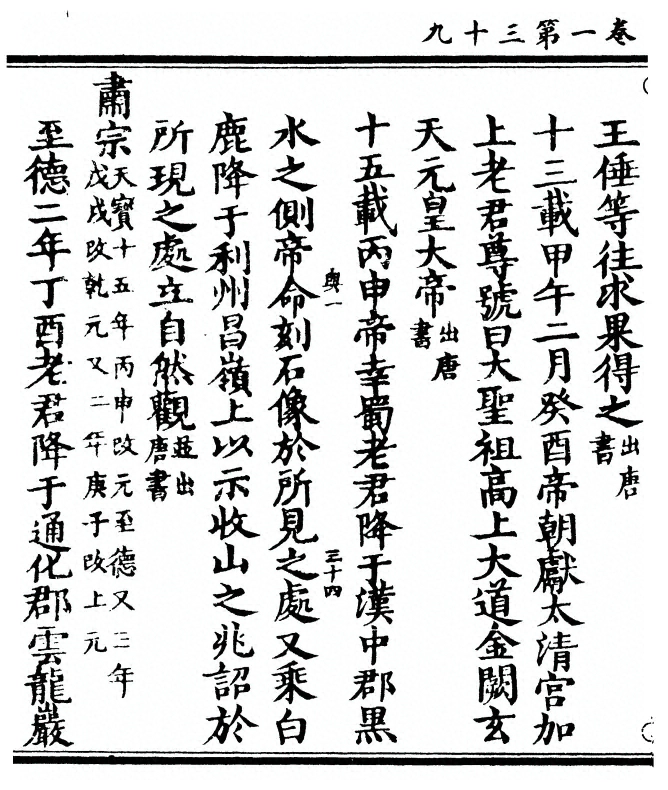 卷一第三十九
王倕等往求果得之出唐書
十三載甲午二月癸酉帝朝獻太清宮加
上老君尊號曰大聖祖高上大道金闕玄
天元皇大帝出唐書
十五載丙申帝幸蜀老君降于漢中郡黑
與一
三十四
水之側帝命刻石像於所見之處又乘白
鹿降于利州昌嶺上以示收山之兆詔於
所現之處立自然觀並出唐書
肅宗天寶十五年丙申改元至德又三年戊戌改乾元又二年庚子改上元
至德二年丁酉老君降于通化郡雲龍巖